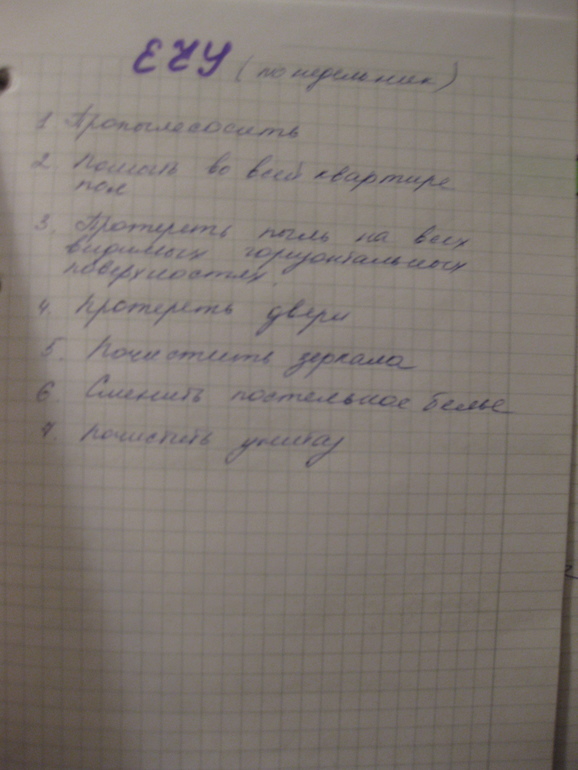 ЕЧУ (понедельник)
1 Пропылесосить
2. Помыть во всей квартире
пол
3. Протереть пыль на всех
видимых горизонтальных
поверхностях.
4. Протереть двери
5. Почистить зеркала
6. Сменить постельное белье
7. Почистить унитаз